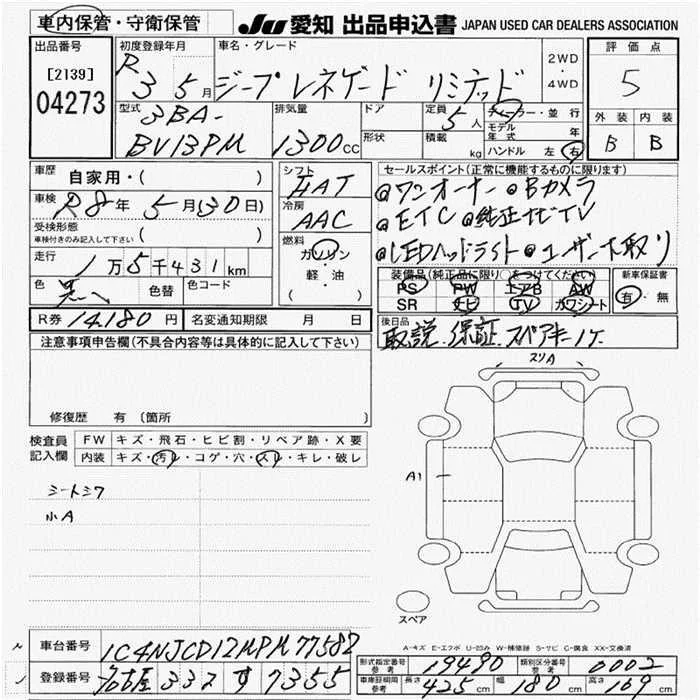 車内保管・守衛保管
JU 愛知 出品申込書 JAPAN USED CAR DEALERS ASSOCIATION
出品番号
[2139]
04273
初度登録年月
R 3 5月
車名・グレード
ジープ レネゲード リミテッド
2WD
・
4WD
評価点
5
外装 内装
B B
型式
3BA-
BV13PM
排気量
1300cc
ドア
形状
定員
5人
積載
kg
ディーラー・並行
モデル年式 年
ハンドル 左 右
車歴
自家用・( )
車検
R8年 5月(30日)
受検形態
車検付きのみ記入して下さい ( )
走行
1万5千431km
色
黒
色替
色コード
シフト
HAT
冷房
AAC
燃料
ガソリン
・軽・油
( )
セールスポイント(正常に機能するものに限ります)
@ワンオーナー @Bカメラ
@ETC @純正ナビTV
@LEDヘッドライト @ユーザー下取り
装備品(純正品に限り○をつけてください)
PS PW エアB AW
SR ナビ TV カワシート
新車保証書
有・無
R券 14,180円
名変通知期限 月 日
後日品
取説.保証.スペアキー1ケ
注意事項申告欄(不具合内容等は具体的に記入して下さい)
修復歴 有 〔箇所
検査員記入欄
FW キズ・飛石・ヒビ割・リペア跡・X要
内装 キズ・汚れ・コゲ・穴・スレ・キレ・破レ
シートシワ
小A
スリA
A1
スペア
A-キズ E-エクボ U-凹み W-補修跡 S-サビ C-腐食 XX-交換済
車台番号 1C4NJCD12MPM77582
登録番号 名古屋 332 す 7355
形式指定番号 参考 19490
類別区分番号 参考 0002
車庫証明用 参考 長さ 425cm 幅 180cm 高さ 169cm